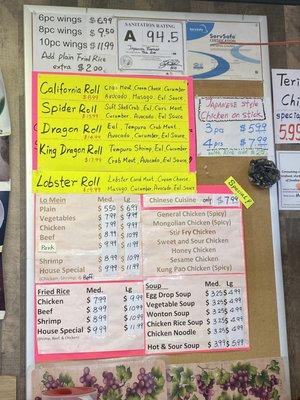 6pc wings $6.99
8pc wings 9.50
10pc wings $11.99
Add plain Fried Rice
extra $2.00
SANITATION RATING
A 94.5
ServSafe
California Roll Crab Meat, Cream Cheese, Cucumber
Avocado, Masago, Eel Sauce
Spider Roll Soft Shell Crab, Eel, Crab Meat,
Cucumber, Avocado, Eel Sauce
Dragon Roll Eel, Tempura Crab Meat,
Avocado, Cucumber, Eel Sauce
King Dragon Roll Tempura Shrimp, Eel, Cucumber
Crab Meat, Avocado, Eel Sauce
Lobster Roll Lobster, Crab Meat, Cream Cheese,
Masago, Cucumber, Avocado, Eel Sauce
Japanese Style
Chicken on stick
3 pcs $5.99
4 pcs 7.99
Teri
Chick
special
5.95
Lo Mein Med. Lg
Plain
Vegetables
Chicken
Beef
Pork
Shrimp
House Special
(Chicken, Shrimp, & Beef)
Chinese Cuisine only $7.99
Special!
General Chicken (Spicy)
Mongolian Chicken (Spicy)
Stir Fry Chicken
Sweet and Sour Chicken
Honey Chicken
Sesame Chicken
Kung Pao Chicken (Spicy)
Fried Rice Med. Lg
Chicken $7.99 $9.99
Beef $8.99 $10.99
Shrimp $8.99 $10.99
House Special $9.99 $11.99
(Shrimp, Beef, & Chicken)
Soup Med. Lg
Egg Drop Soup $3.25 $4.99
Vegetable Soup $3.25 $4.99
Wonton Soup $3.25 $4.99
Chicken Rice Soup $3.25 $4.99
Chicken Noodle $3.25 $4.99
Hot & Sour Soup $3.99 $5.99